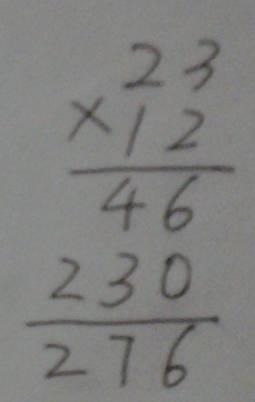 23
×12
46
230
276